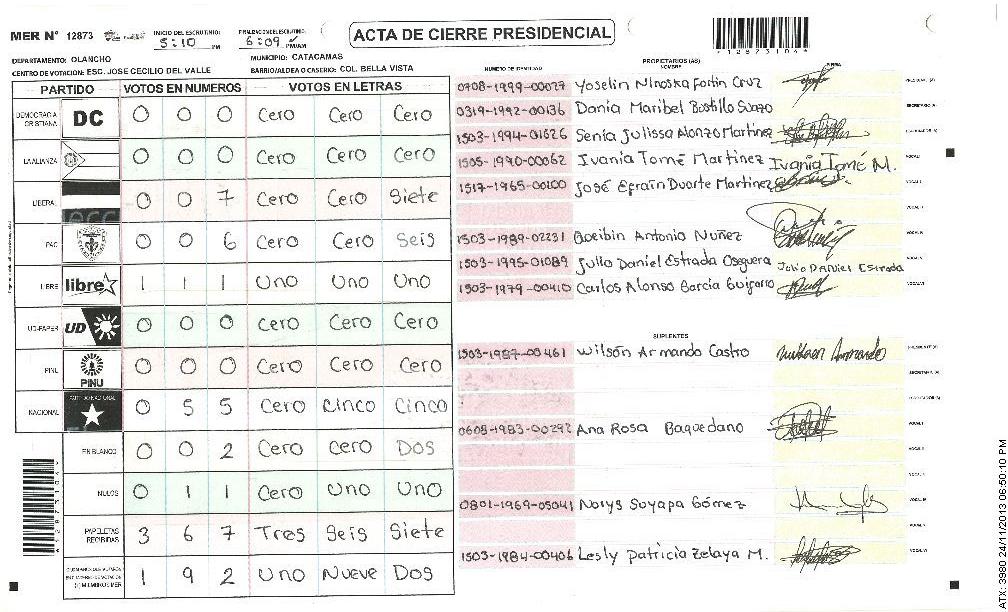 MER N° 12873
INICIO DEL ESCRUTINIO: 5:10 PM
FINALIZACION ESCRUTINIO: 6:09 PM/AM
ACTA DE CIERRE PRESIDENCIAL
1 2 8 7 3 1 0 4
DEPARTAMENTO: OLANCHO
MUNICIPIO: CATACAMAS
CENTRO DE VOTACIÓN: ESC. JOSE CECILIO DEL VALLE
BARRIO/ALDEA O CASERIO: COL. BELLA VISTA
PARTIDO VOTOS EN NUMEROS VOTOS EN LETRAS
DEMOCRACIA CRISTIANA DC 0 0 0 Cero Cero Cero
LA ALIANZA 0 0 0 Cero Cero Cero
LIBERAL 0 0 7 Cero Cero Siete
PAC 0 0 6 Cero Cero Seis
LIBRE libre 1 1 1 Uno Uno Uno
UD-FAPER UD 0 0 0 Cero Cero Cero
PINU PINU 0 0 0 Cero Cero Cero
NACIONAL 0 5 5 Cero Cinco Cinco
EN BLANCO 0 0 2 Cero Cero Dos
NULOS 0 1 1 Cero Uno Uno
PAPELETAS RECIBIDAS 3 6 7 Tres Seis Siete
1 9 2 Uno Nueve Dos
NUMERO DE IDENTIDAD
PROPIETARIOS (AS)
NOMBRE
FIRMA
0708-1999-00027 Yoselin Ninoska Fortin Cruz
0319-1992-00136 Dania Maribel Bostillo Suazo
1503-1994-01626 Senia Julissa Alonzo Martinez
1505-1990-00062 Ivania Tomé Martinez Ivania Tomé M.
1517-1965-00200 José Efraín Duarte Martinez
1503-1989-02231 Doeibin Antonio Nuñez
1503-1995-01089 Julio Daniel Estrada Oseguera Julio Daniel Estrada
1503-1979-00410 Carlos Alonso Garcia Guifarro
SUPLENTES
1503-1987-00461 Wilson Armando Castro
0608-1983-00292 Ana Rosa Baquedano
0801-1969-05041 Norys Suyapa Gómez
1503-1984-00406 Lesly Patricia Zelaya M.
ATX: 3980 24/11/2013 06:50:10 PM